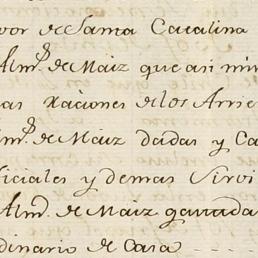 vor de Santa Catalina
Alm.^s de Maiz que asi mis
as Raciones de los Arrie
Alm.^s de Maiz dadas y Ca
ficiales y demas Sirvi
Alm.^s de Maiz gastadas
dinario de Casa